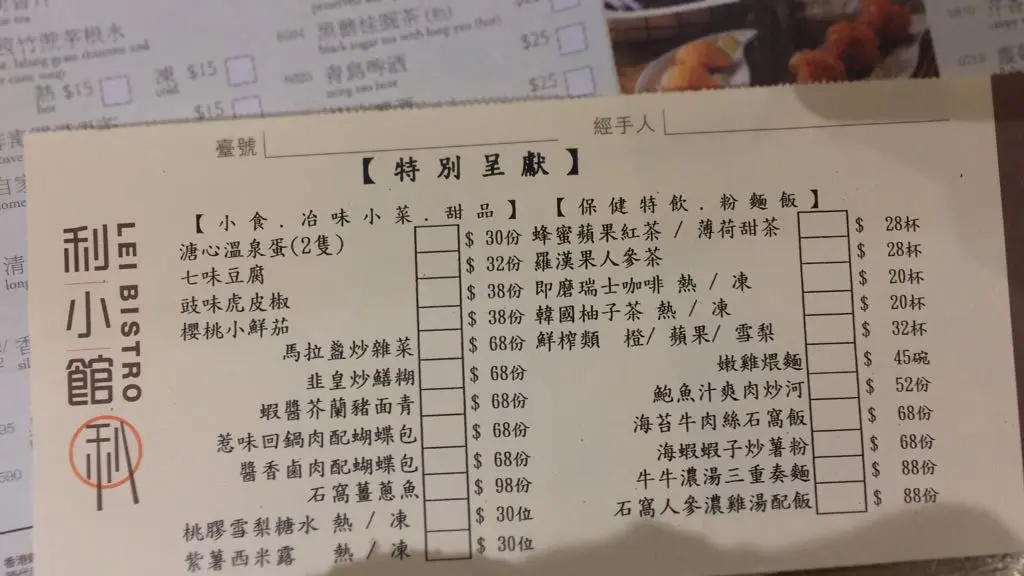 熱 $15
hot
凍 $15
$15
6004
黑糖桂圓茶(熱)
black sugar tea with long yan (hot)
$25
青島啤酒
tsing tao beer
$25
臺號
經手人
【特別呈獻】
【小食.冶味小菜.甜品】
溏心溫泉蛋(2隻) $ 30份
七味豆腐 $ 32份
豉味虎皮椒 $ 38份
櫻桃小鮮茄 $ 38份
馬拉盞炒雜菜 $ 68份
韭皇炒鱔糊 $ 68份
蝦醬芥蘭豬面青 $ 68份
惹味回鍋肉配蝴蝶包 $ 68份
醬香鹵肉配蝴蝶包 $ 68份
石窩薑蔥魚 $ 98份
桃膠雪梨糖水 熱 / 凍 $ 30位
紫薯西米露 熱 / 凍 $ 30位
【保健特飲.粉麵飯】
蜂蜜蘋果紅茶 / 薄荷甜茶 $ 28杯
羅漢果人參茶 $ 28杯
即磨瑞士咖啡 熱 / 凍 $ 20杯
韓國柚子茶 熱 / 凍 $ 20杯
鮮榨類 橙/ 蘋果/ 雪梨 $ 32杯
嫩雞煨麵 $ 45碗
鮑魚汁爽肉炒河 $ 52份
海苔牛肉絲石窩飯 $ 68份
海蝦蝦子炒薯粉 $ 68份
牛牛濃湯三重奏麵 $ 88份
石窩人參濃雞湯配飯 $ 88份
利小館
LEI BISTRO